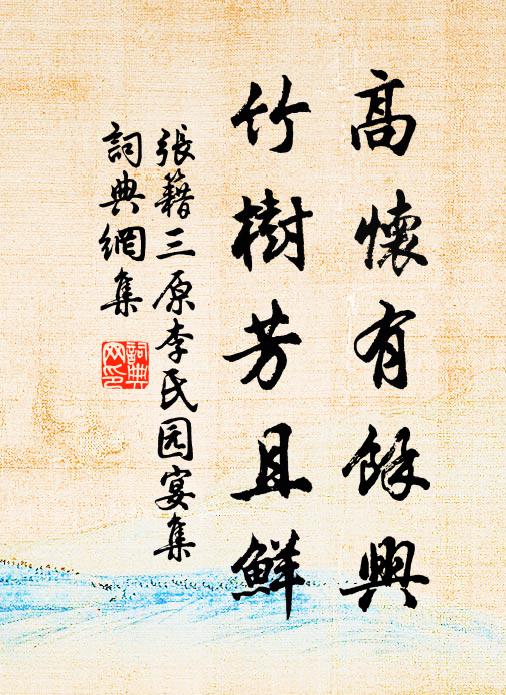 高懷有餘興
竹樹芳且鮮
張籍三原李氏园宴集
詞典網集
詞典
网印